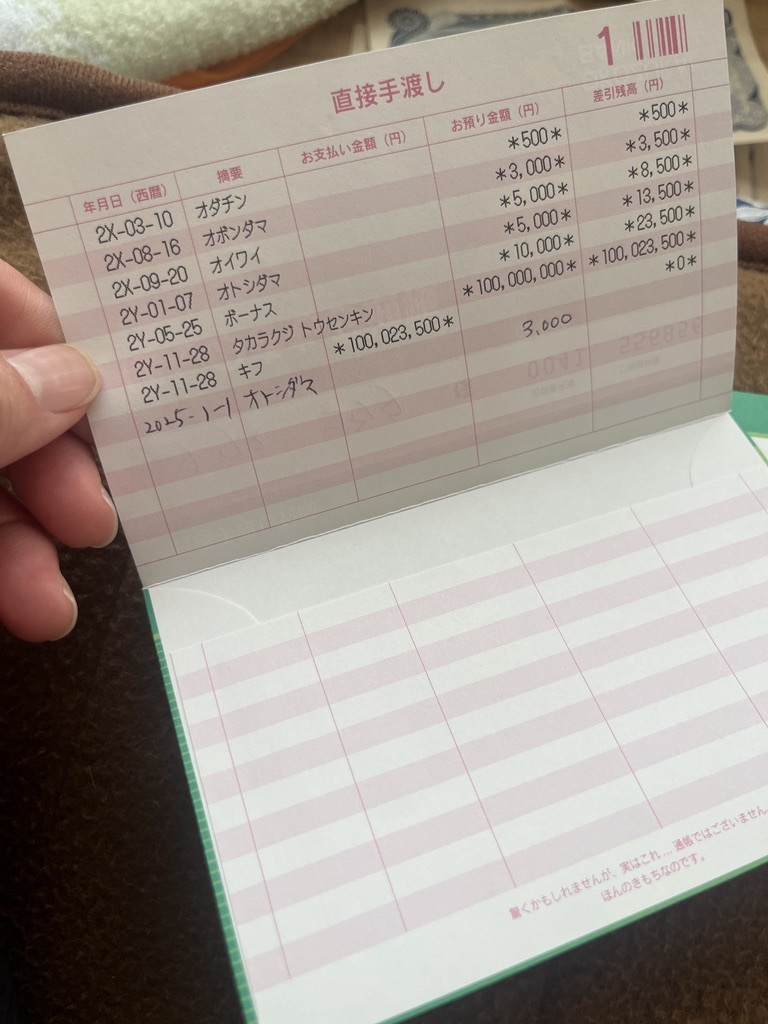 1
直接手渡し
年月日（西暦） 摘要 お支払い金額（円） お預り金額（円） 差引残高（円）
2X-03-10 オダチン *500* *500*
2X-08-16 オボンダマ *3,000* *3,500*
2X-09-20 オイワイ *5,000* *8,500*
2Y-01-07 オトシダマ *5,000* *13,500*
2Y-05-25 ボーナス *10,000* *23,500*
2Y-11-28 タカラクジ トウセンキン *100,000,000* *100,023,500*
2Y-11-28 キフ *100,023,500* *0*
2025-1-1 オトシダマ 3,000
驚くかもしれませんが、実はこれ…通帳ではございません。
ほんのきもちなのです。